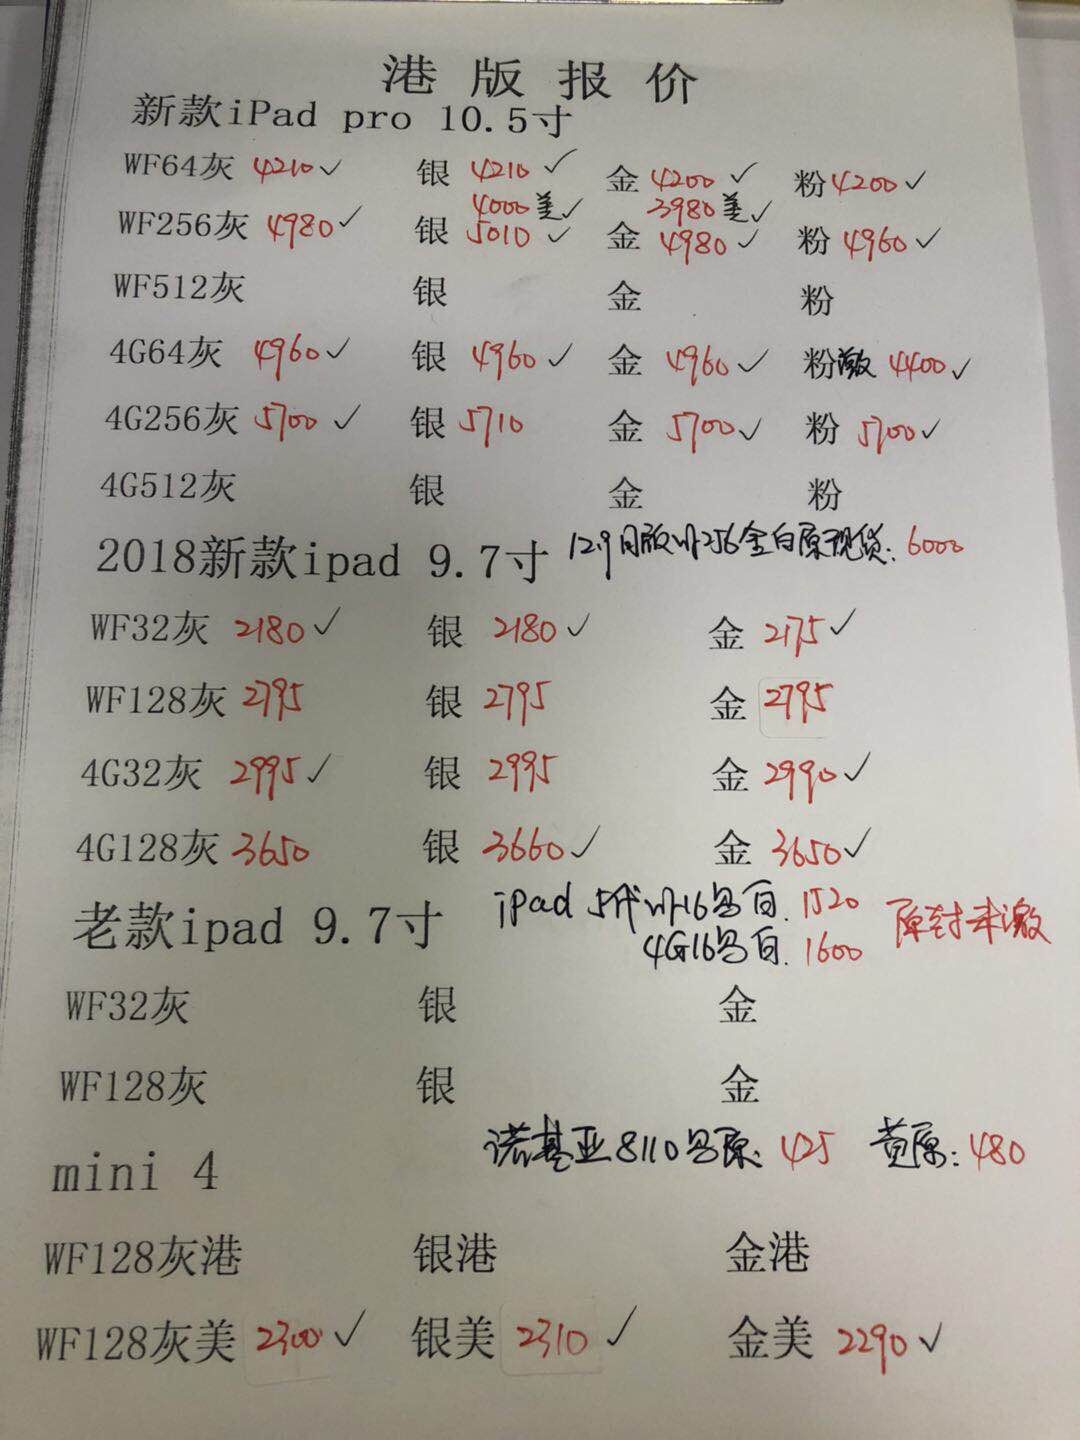 港版报价
新款iPad pro 10.5寸
WF64灰 4210✓ 银 4210✓ 金 4200✓ 粉 4200✓
4000美✓ 3980美✓
WF256灰 4980✓ 银 5010✓ 金 4980✓ 粉 4960✓
WF512灰 银 金 粉
4G64灰 4960✓ 银 4960✓ 金 4960✓ 粉激 4400✓
4G256灰 5700✓ 银 5710 金 5700✓ 粉 5700✓
4G512灰 银 金 粉
2018新款ipad 9.7寸 12.9 256金白原现货:6000
WF32灰 2180✓ 银 2180✓ 金 2175✓
WF128灰 2795 银 2795 金 2795
4G32灰 2995✓ 银 2995 金 2990✓
4G128灰 3650 银 3660✓ 金 3650✓
老款ipad 9.7寸 ipad 5代 16 白.1520 原封未激
4G16 白.1600
WF32灰 银 金
WF128灰 银 金
mini 4 诺基亚8110 原:425 黄原:480
WF128灰港 银港 金港
WF128灰美 2300✓ 银美 2310✓ 金美 2290✓